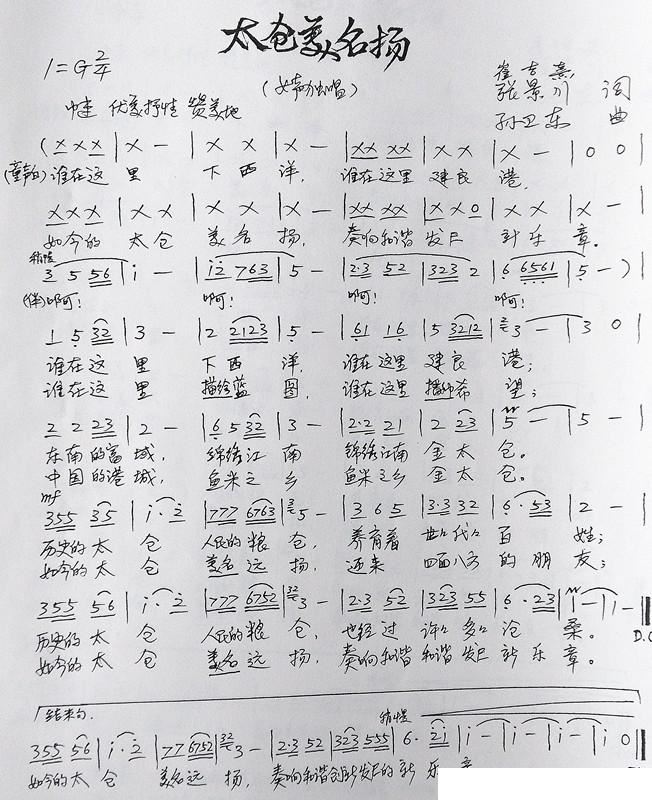 太仓美名扬
1=G 2/4
(女声独唱)
中速 优美抒情 赞美地
张景川 词
孙卫东 曲
(X X X | X – | X X | X – | XX XX | X X | X – | 0 0 |
(童声白) 谁在这里 下西洋, 谁在这里建良港,
X X X | X X | X X | X – | XX XX | X X 0 | X X | X – |
如今的太仓美名扬, 奏响和谐发展新乐章。
稍慢
3 5 56 | i – | i2 763 | 5 – | 2·3 52 | 323 2 | 6 6561 | 5 – )
(伴) 啊! 啊! 啊! 啊!
1 5 32 | 3 – | 2 2123 | 5 – | 61 16 | 5 3212 | 3 – | 3 0 |
谁在这里下西洋, 谁在这里建良港;
谁在这里描绘蓝图, 谁在这里播种希望;
2 2 23 | 2 – | 6 5 32 | 3 – | 2·2 21 | 2 23 | 5 – | 5 – |
东南的富城, 锦绣江南 锦绣江南金太仓。
中国的港城, 鱼米之乡 鱼米之乡金太仓。
mf
355 35 | i·2 | 777 6763 | 5 – | 3 6 5 | 3·3 32 | 6·53 | 2 – |
历史的太仓 人民的粮仓, 养育着世世代代百姓;
如今的太仓 美名远扬, 迎来四面八方的朋友;
355 56 | i·2 | 777 6752 | 3 – | 2·3 52 | 323 55 | 6·23 | 1 – | 1 – ‖
历史的太仓 人民的粮仓, 也经过许许多多沧桑。
如今的太仓 美名远扬, 奏响和谐和谐发展新乐章。
D.C
结束句. 稍慢
355 56 | i·2 | 77 6752 | 3 – | 2·3 52 | 323 555 | 6·2i | i – | i – | i – | i 0 ‖
如今的太仓 美名远扬, 奏响和谐创新发展的新乐章